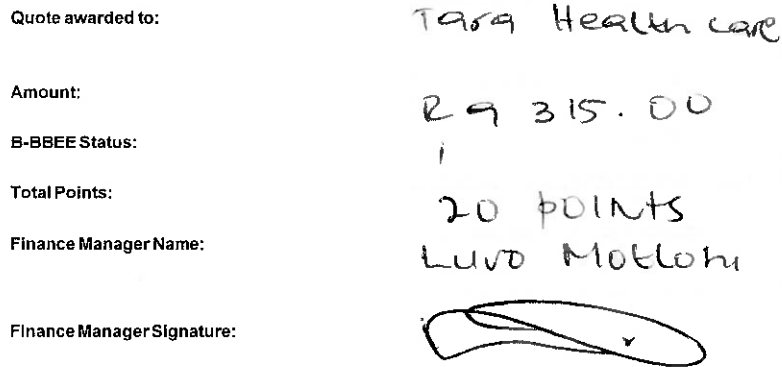 Quote awarded to: Tara Health care
Amount: R9 315.00
B-BBEE Status: 1
Total Points: 20 points
Finance Manager Name: Luvo
Finance Manager Signature: